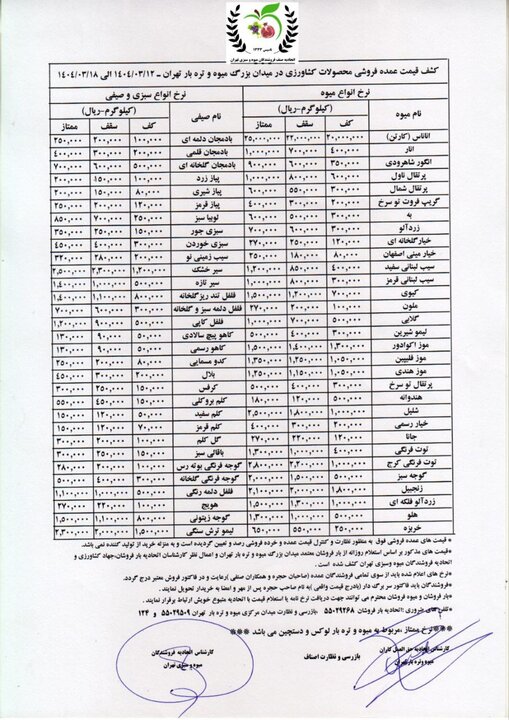 اتحادیه صنف فروشندگان میوه و سبزی تهران
کشف قیمت عمده فروشی محصولات کشاورزی در میدان بزرگ میوه و تره بار تهران ـ ۱۴۰۴/۰۳/۱۲ الی ۱۴۰۴/۰۳/۱۸
نرخ انواع میوه نرخ انواع سبزی و صیفی
نام میوه (کیلوگرم-ریال) نام صیفی (کیلوگرم-ریال)
کف سقف ممتاز کف سقف ممتاز
آناناس (کارتن) ۲۰,۰۰۰,۰۰۰ ۲۲,۰۰۰,۰۰۰ ۲۵,۰۰۰,۰۰۰ بادمجان دلمه ای ۱۰۰,۰۰۰ ۲۰۰,۰۰۰ ۲۵۰,۰۰۰
انار ۴۰۰,۰۰۰ ۷۰۰,۰۰۰ ۱,۰۰۰,۰۰۰ بادمجان قلمی ۲۰۰,۰۰۰ ۳۰۰,۰۰۰ ۴۰۰,۰۰۰
انگور شاهرودی ۳۵۰,۰۰۰ ۶۰۰,۰۰۰ ۹۰۰,۰۰۰ بادمجان گلخانه ای ۶۰۰,۰۰۰ ۷۰۰,۰۰۰
پرتقال ناول ۶۰۰,۰۰۰ ۸۰۰,۰۰۰ ۱,۰۰۰,۰۰۰ پیاز زرد ۱۰۰,۰۰۰ ۱۵۰,۰۰۰ ۲۰۰,۰۰۰
پرتقال شمال ۳۰۰,۰۰۰ ۵۵۰,۰۰۰ ۶۰۰,۰۰۰ پیاز شیری ۸۰,۰۰۰ ۱۵۰,۰۰۰ ۲۰۰,۰۰۰
گریپ فروت تو سرخ ۳۰۰,۰۰۰ ۴۰۰,۰۰۰ ۶۰۰,۰۰۰ پیاز قرمز ۱۲۰,۰۰۰ ۲۰۰,۰۰۰ ۲۵۰,۰۰۰
به ۳۰۰,۰۰۰ ۵۰۰,۰۰۰ ۶۰۰,۰۰۰ لوبیا سبز ۲۵۰,۰۰۰ ۷۰۰,۰۰۰ ۸۵۰,۰۰۰
زردآلو ۳۰۰,۰۰۰ ۶۰۰,۰۰۰ ۷۰۰,۰۰۰ سبزی جور ۱۵۰,۰۰۰ ۳۵۰,۰۰۰
خیارگلخانه ای ۱۲۰,۰۰۰ ۲۵۰,۰۰۰ ۲۷۰,۰۰۰ سبزی خوردن ۳۰۰,۰۰۰ ۴۰۰,۰۰۰ ۴۵۰,۰۰۰
خیار مینی اصفهان ۸۰,۰۰۰ ۱۸۰,۰۰۰ ۲۵۰,۰۰۰ سیب زمینی نو ۲۰۰,۰۰۰ ۲۸۰,۰۰۰ ۳۲۰,۰۰۰
سیب لبنانی سفید ۴۰۰,۰۰۰ ۸۵۰,۰۰۰ ۱,۲۰۰,۰۰۰ سیر خشک ۱,۲۰۰,۰۰۰ ۲,۳۰۰,۰۰۰ ۲,۵۰۰,۰۰۰
سیب لبنانی قرمز ۳۰۰,۰۰۰ ۸۰۰,۰۰۰ ۱,۰۰۰,۰۰۰ سیر تازه ۵۰۰,۰۰۰ ۱,۰۰۰,۰۰۰
کیوی ۷۰۰,۰۰۰ ۱,۲۰۰,۰۰۰ ۱,۵۰۰,۰۰۰ فلفل تند ریز گلخانه ۸۰۰,۰۰۰ ۱,۱۰۰,۰۰۰ ۱,۴۰۰,۰۰۰
ملون ۱۰۰,۰۰۰ ۲۰۰,۰۰۰ ۲۷۰,۰۰۰ فلفل دلمه سبز و گلخانه ۳۰۰,۰۰۰ ۶۰۰,۰۰۰ ۷۰۰,۰۰۰
گلابی ۵۰۰,۰۰۰ فلفل کاپی ۵۰۰,۰۰۰ ۹۰۰,۰۰۰ ۱,۲۰۰,۰۰۰
لیمو شیرین ۳۰۰,۰۰۰ ۴۰۰,۰۰۰ کاهو پیچ سالادی ۵۰,۰۰۰ ۹۰,۰۰۰ ۱۳۰,۰۰۰
موز اکوادور ۱,۳۰۰,۰۰۰ ۱,۴۰۰,۰۰۰ ۱,۵۰۰,۰۰۰ کاهو رسمی ۵۰,۰۰۰ ۹۰,۰۰۰ ۱۳۰,۰۰۰
موز فلیپین ۱,۰۵۰,۰۰۰ ۱,۲۵۰,۰۰۰ ۱,۳۵۰,۰۰۰ کدو مسمایی ۸۰,۰۰۰ ۲۰۰,۰۰۰ ۲۵۰,۰۰۰
موز هندی ۱,۰۵۰,۰۰۰ ۱,۱۵۰,۰۰۰ ۱,۲۵۰,۰۰۰ بلال ۲۰۰,۰۰۰ ۳۰۰,۰۰۰ ۴۵۰,۰۰۰
پرتقال تو سرخ ۳۰۰,۰۰۰ ۴۰۰,۰۰۰ ۵۰۰,۰۰۰ کرفس ۱۵۰,۰۰۰ ۲۵۰,۰۰۰ ۳۰۰,۰۰۰
هندوانه ۵۰,۰۰۰ ۱۲۰,۰۰۰ ۱۸۰,۰۰۰ کلم بروکلی ۱۵۰,۰۰۰ ۴۵۰,۰۰۰ ۶۵۰,۰۰۰
شلیل ۵۰۰,۰۰۰ ۱,۸۰۰,۰۰۰ ۲,۵۰۰,۰۰۰ کلم سفید ۵۰,۰۰۰ ۱۲۰,۰۰۰ ۱۵۰,۰۰۰
خیار رسمی ۲۰۰,۰۰۰ ۳۰۰,۰۰۰ ۴۰۰,۰۰۰ کلم قرمز ۷۰,۰۰۰ ۱۲۰,۰۰۰ ۱۵۰,۰۰۰
جانا ۱۲۰,۰۰۰ ۲۲۰,۰۰۰ ۲۷۰,۰۰۰ گل کلم ۱۰۰,۰۰۰ ۲۰۰,۰۰۰ ۳۰۰,۰۰۰
توت فرنگی ۴۰۰,۰۰۰ ۱,۰۰۰,۰۰۰ ۱,۳۰۰,۰۰۰ باقالی سبز ۱۵۰,۰۰۰ ۲۵۰,۰۰۰ ۳۰۰,۰۰۰
توت فرنگی کرج ۱,۰۰۰,۰۰۰ ۲,۲۰۰,۰۰۰ ۲,۸۰۰,۰۰۰ گوجه فرنگی بوته رس ۱۰۰,۰۰۰ ۲۰۰,۰۰۰ ۲۸۰,۰۰۰
گوجه سبز ۵۰۰,۰۰۰ ۲,۲۰۰,۰۰۰ گوجه فرنگی گلخانه ۳۰۰,۰۰۰ ۴۰۰,۰۰۰ ۵۰۰,۰۰۰
زنجبیل ۲,۰۰۰,۰۰۰ ۲,۱۰۰,۰۰۰ فلفل دلمه رنگی ۵۰۰,۰۰۰ ۱,۰۰۰,۰۰۰ ۱,۱۰۰,۰۰۰
زردآلو فلکه ای ۱,۰۰۰,۰۰۰ ۱,۳۰۰,۰۰۰ ۱,۵۰۰,۰۰۰ هویج ۱۰۰,۰۰۰ ۲۲۰,۰۰۰ ۲۷۰,۰۰۰
هلو ۵۰۰,۰۰۰ ۱,۰۰۰,۰۰۰ ۱,۳۰۰,۰۰۰ گوجه زیتونی ۸۰۰,۰۰۰ ۱,۱۰۰,۰۰۰
خربزه ۲۵۰,۰۰۰ ۵۵۰,۰۰۰ ۶۵۰,۰۰۰ لیمو ترش سنگی ۱,۵۰۰,۰۰۰ ۲,۰۰۰,۰۰۰
* قیمت های عمده فروشی فوق به منظور نظارت و کنترل قیمت عمده و خرده فروشی رصد و تعیین گردیده است و به منزله خرید از تولید کننده نمی باشد.
* قیمت های مذکور بر اساس استعلام روزانه از بار فروشان معتمد میدان بزرگ میوه و تره بار تهران و اعمال نظر کارشناسان اتحادیه بارفروشان،جهاد کشاورزی و
اتحادیه فروشندگان میوه وسبزی تهران کشف شده است.
* نرخ های اعلام شده باید از سوی تمامی فروشندگان عمده (صاحبان حجره و همکاران صنفی )رعایت و در فاکتور فروش معتبر درج گردد.
* فروشندگان باید فاکتور سر برگ دار (بادرج قیمت واقعی )به نام صاحب حجره پس از مهر و امضا به خریدار تحویل نمایند.
* بارفروشان و میوه فروشان محترم می توانند جهت دریافت نرخ نامه یا استعلام قیمت با اتحادیه متبوع خویش ارتباط برقرار نمایند.
*تلفن های ضروری :اتحادیه بار فروشان ۵۵۰۲۹۲۶۸ ،بازرسی و نظارت میدان مرکزی میوه و تره بار تهران ۵۵۰۲۹۵۰۹ و ۱۲۴
***نرخ ممتاز ،مربوط به میوه و تره بار لوکس و دستچین می باشد ***
کارشناس اتحادیه حق العمل کاران بازرسی و نظارت اصناف کارشناس اتحادیه فروشندگان
میوه و تره بار تهران میوه و سبزی تهران